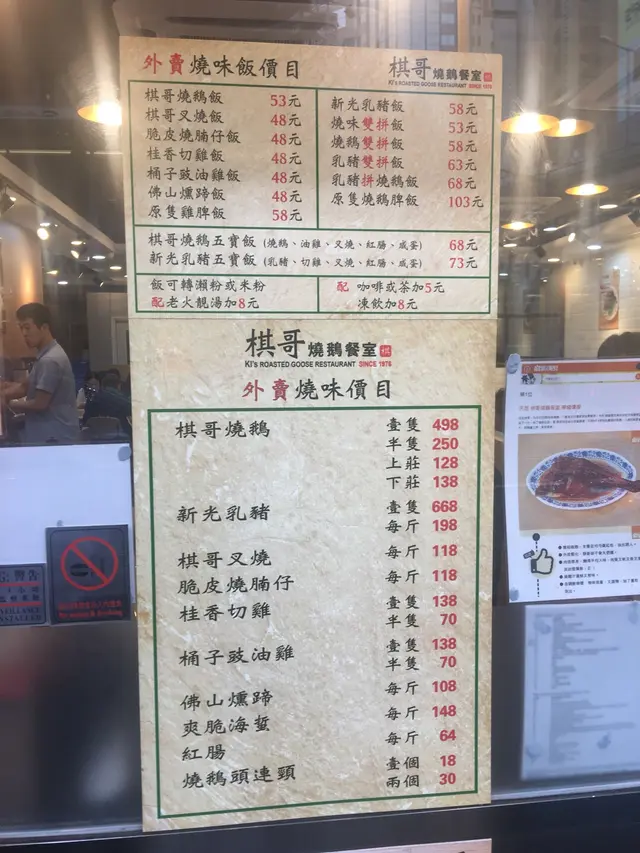 外賣燒味飯價目
棋哥燒鵝餐室
Ki's ROASTED GOOSE RESTAURANT SINCE 1975
棋哥燒鵝飯 53元
棋哥叉燒飯 48元
脆皮燒腩仔飯 48元
桂香切雞飯 48元
桶子豉油雞飯 48元
佛山燻蹄飯 48元
原隻雞脾飯 58元
新光乳豬飯 58元
燒味雙拼飯 53元
燒鵝雙拼飯 58元
乳豬雙拼飯 63元
乳豬拼燒鵝飯 68元
原隻燒鵝脾飯 103元
棋哥燒鵝五寶飯 (燒鵝、油雞、叉燒、紅腸、咸蛋) 68元
新光乳豬五寶飯 (乳豬、切雞、叉燒、紅腸、咸蛋) 73元
飯可轉瀨粉或米粉
配老火靚湯加8元
配 咖啡或茶加5元
凍飲加8元
棋哥燒鵝餐室 棋
Ki's ROASTED GOOSE RESTAURANT SINCE 1975
外賣燒味價目
棋哥燒鵝 壹隻 498
半隻 250
上莊 128
下莊 138
新光乳豬 壹隻 668
每斤 198
棋哥叉燒 每斤 118
脆皮燒腩仔 每斤 118
桂香切雞 壹隻 138
半隻 70
桶子豉油雞 壹隻 138
半隻 70
佛山燻蹄 每斤 108
爽脆海蜇 每斤 148
紅腸 每斤 64
燒鵝頭連頸 壹個 18
兩個 30
警告